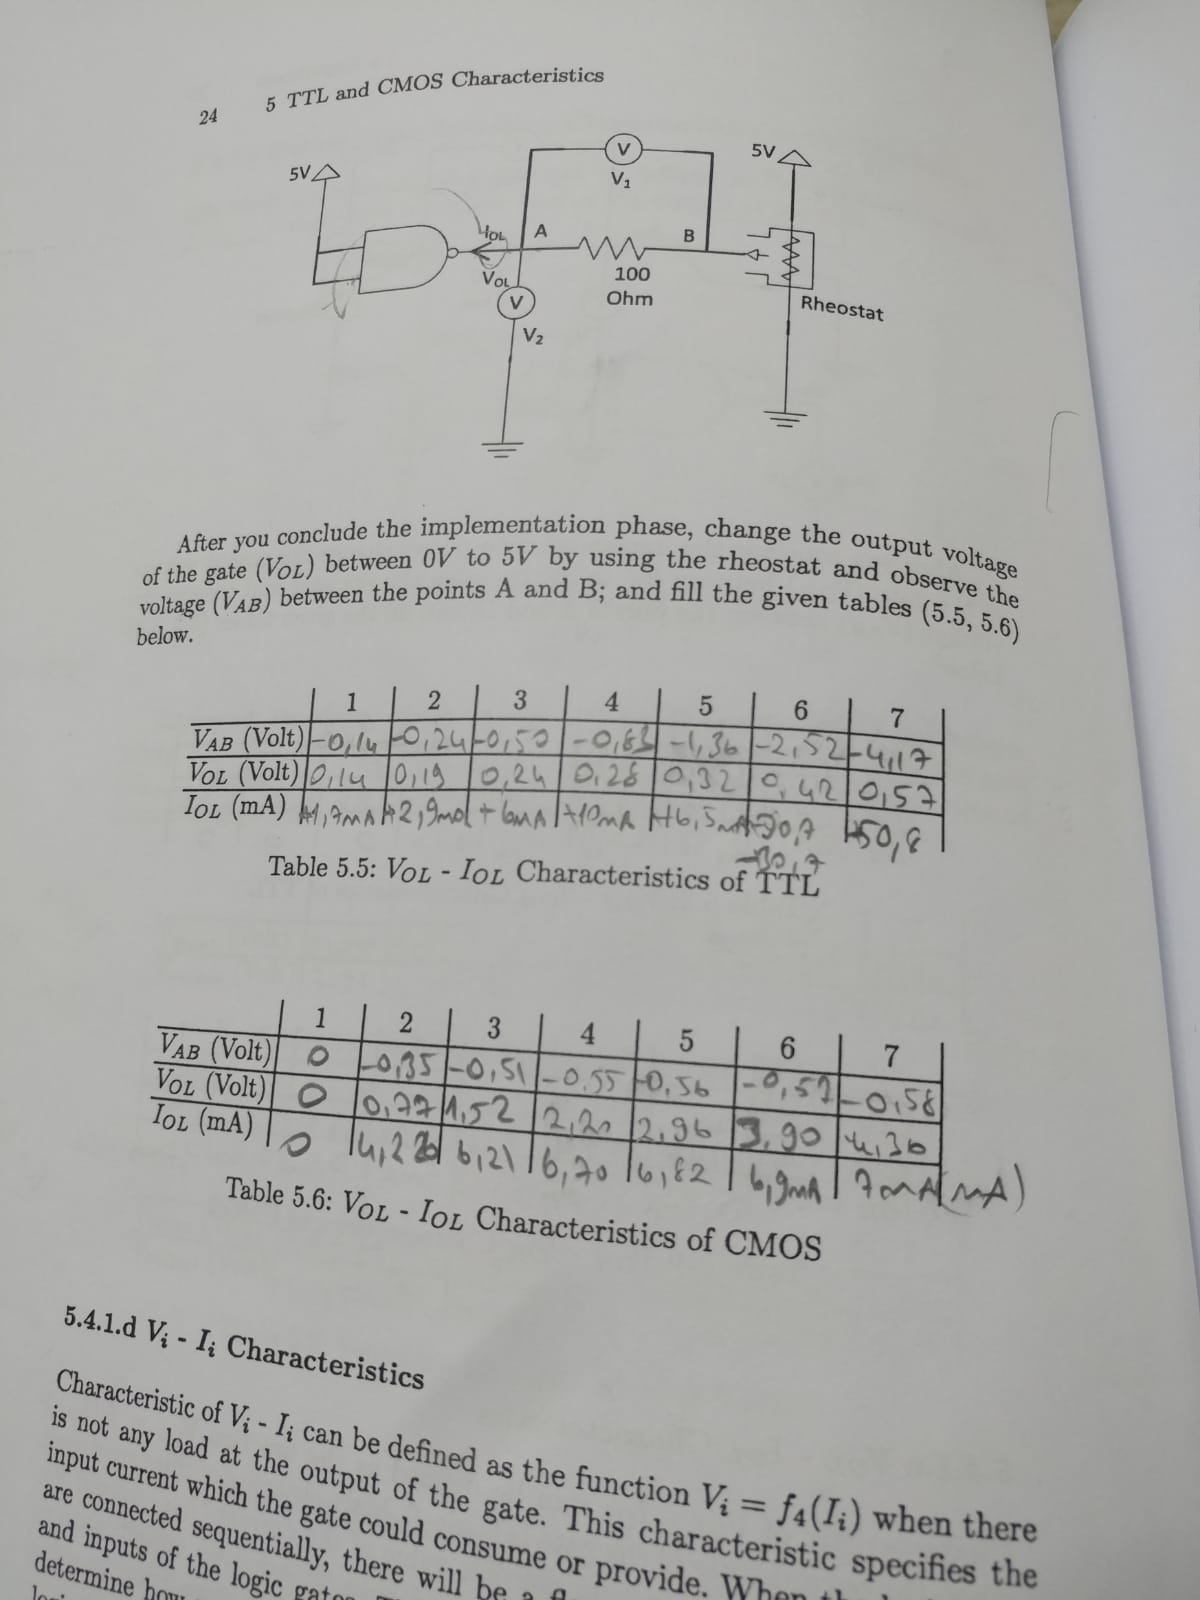 24 5 TTL and CMOS Characteristics
5V
V
V1
5V
IOL
A
B
VOL
100
Ohm
V
V2
Rheostat
After you conclude the implementation phase, change the output voltage
of the gate (VOL) between 0V to 5V by using the rheostat and observe the
voltage (VAB) between the points A and B; and fill the given tables (5.5, 5.6)
below.
1 2 3 4 5 6 7
VAB (Volt) -0,14 -0,24 -0,50 -0,83 -1,36 -2,52 -4,17
VOL (Volt) 0,14 0,19 0,24 0,28 0,32 0,42 0,57
IOL (mA) +1,7mA +2,9mA +6mA +10mA +16,5mA 30,7 +50,8
30,7
Table 5.5: VOL - IOL Characteristics of TTL
1 2 3 4 5 6 7
VAB (Volt) 0 -0,35 -0,51 -0,55 -0,56 -0,57 -0,58
VOL (Volt) 0 0,77 1,52 2,20 2,96 3,90 4,36
IOL (mA) 0 4,2 6,21 6,70 6,82 6,9mA 7mA (mA)
Table 5.6: VOL - IOL Characteristics of CMOS
5.4.1.d Vi - Ii Characteristics
Characteristic of Vi - Ii can be defined as the function Vi = f4(Ii) when there
is not any load at the output of the gate. This characteristic specifies the
input current which the gate could consume or provide. When
are connected sequentially, there will be a
and inputs of the logic
determine how